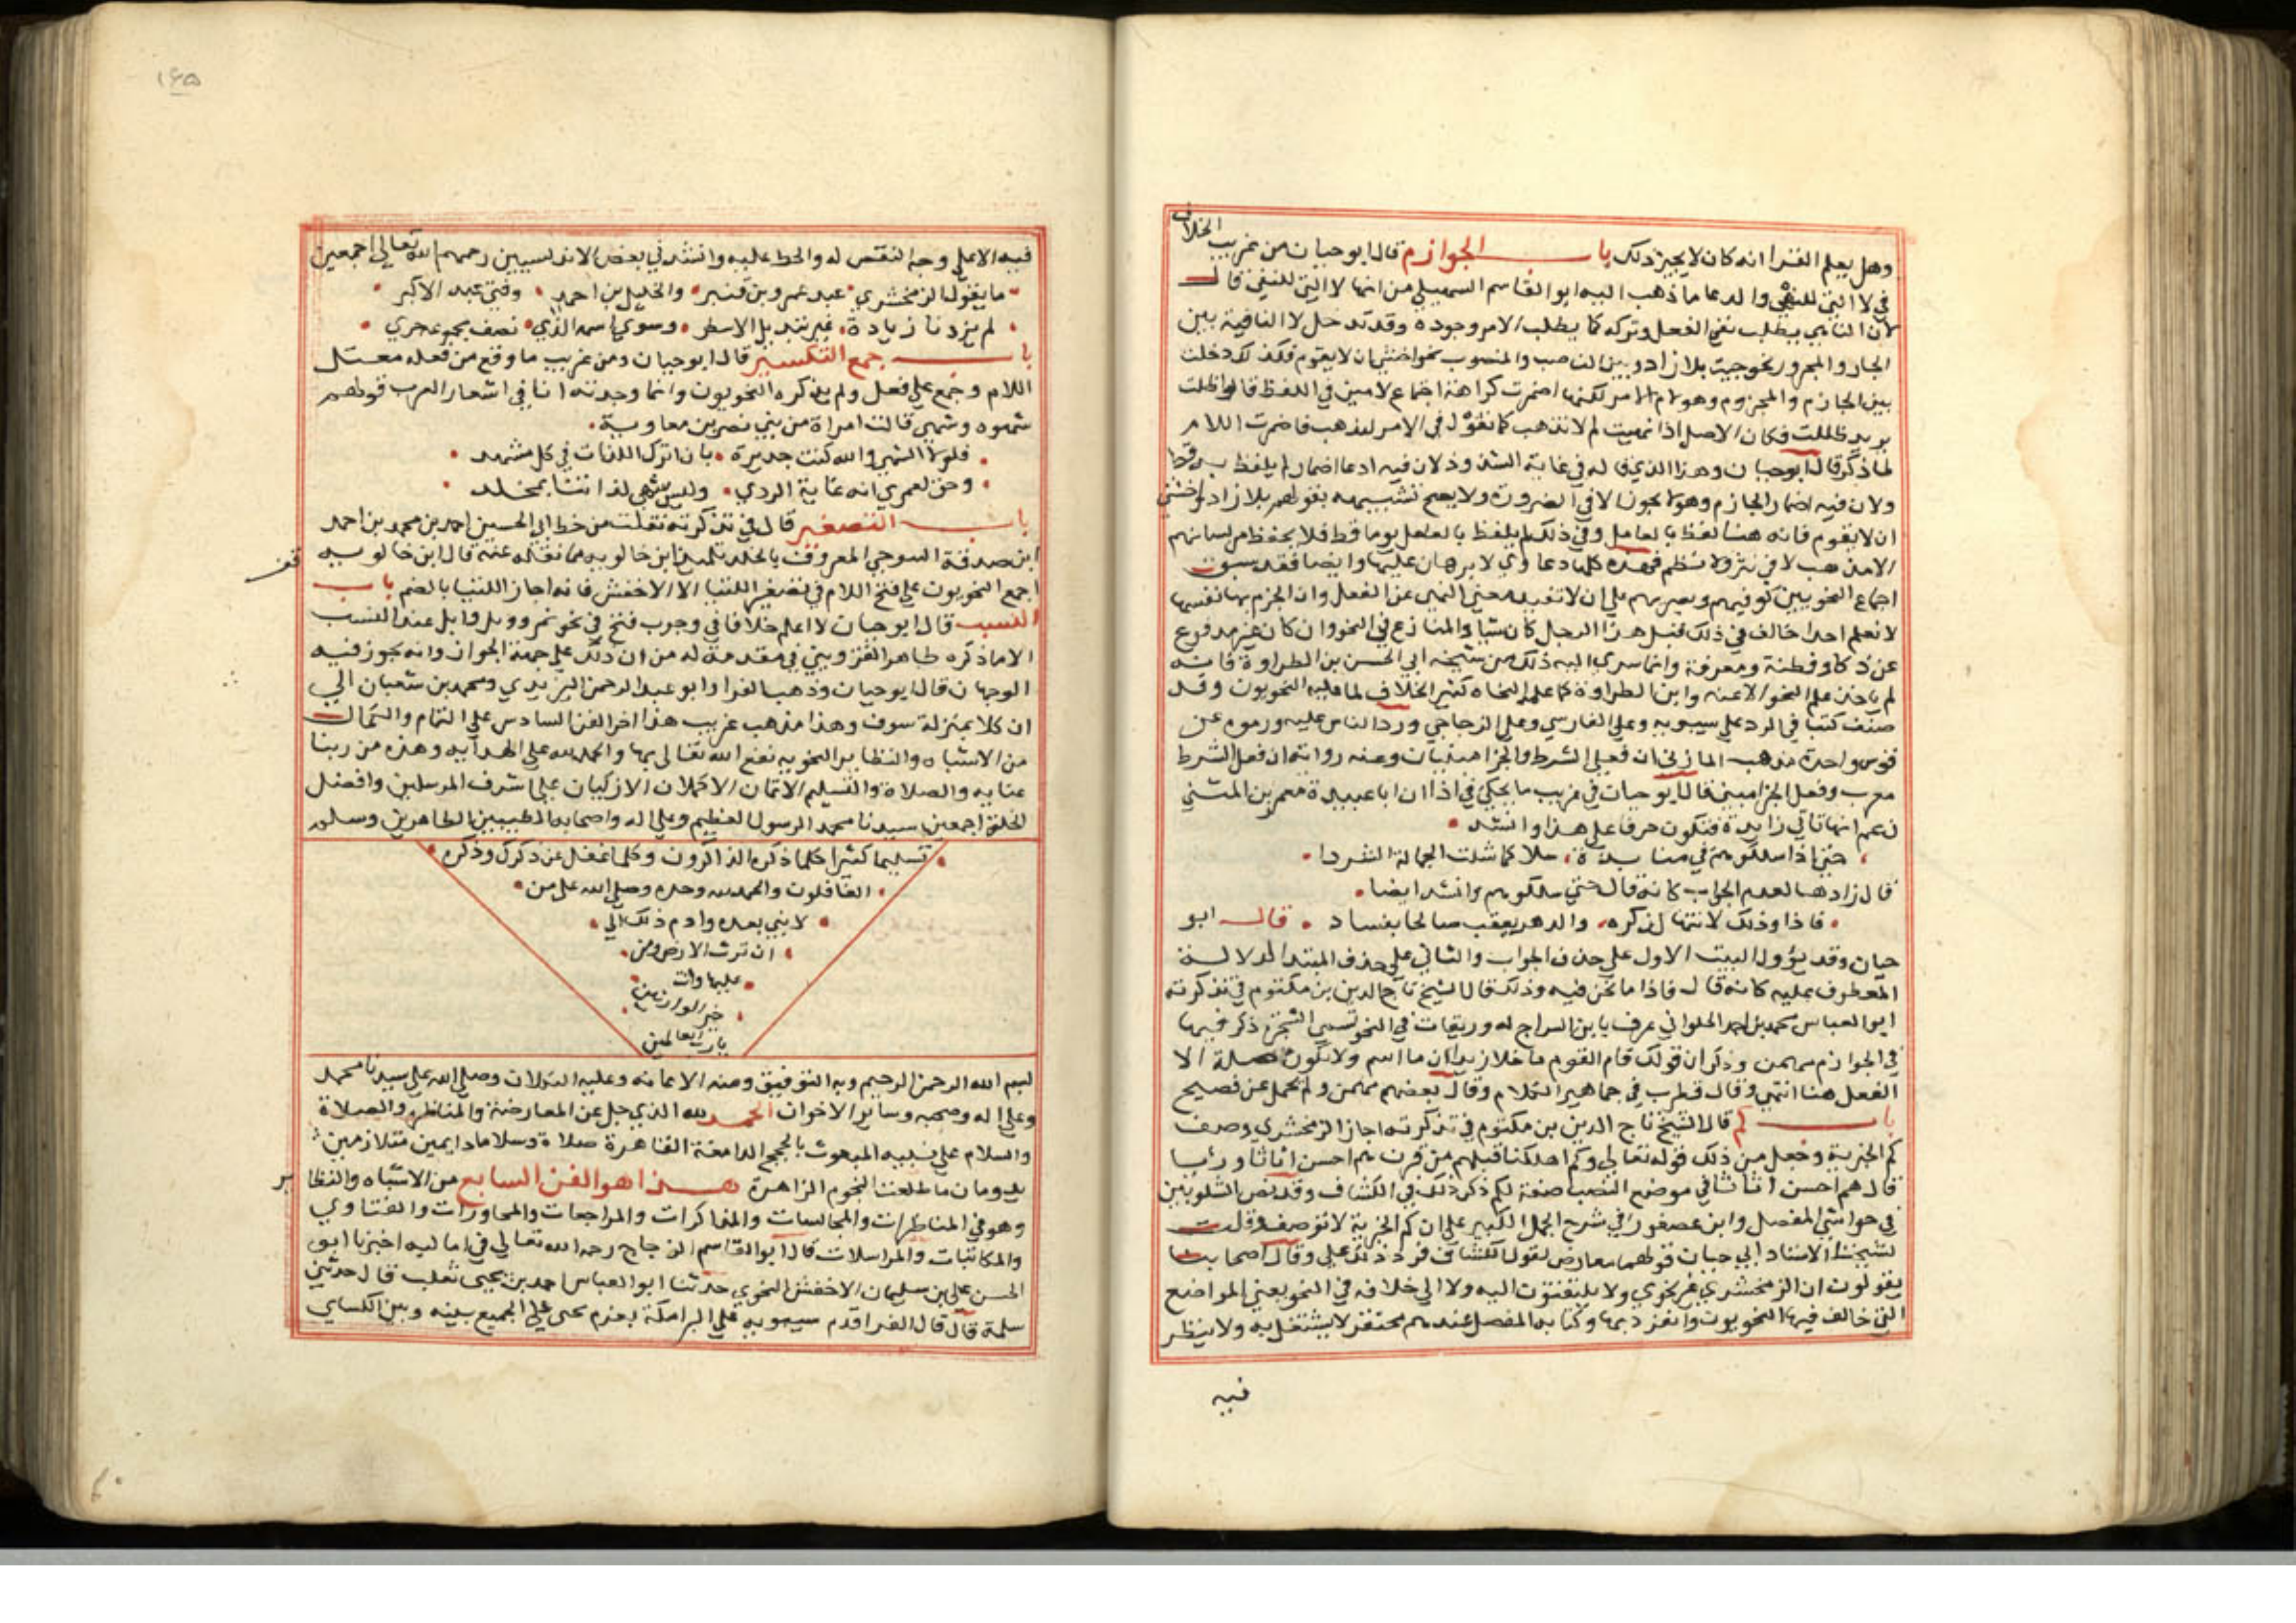 وهل يعلم الفرا انه كان لا يجيز ذلك باب الجوازم قال ابو حيان من غريب الخلاف
في لا التي للنهي والدعا ما ذهب اليه ابو القاسم السهيلي من انها لا التي للنفي قال
لان الناهي يطلب نفي الفعل وتركه كما يطلب الامر وجوده وقد تدخل لا النافية بين
الجار والمجرور نحو جيت بلا زاد وبين الناصب والمنصوب نحو اخشى ان لا يقوم فكذلك دخلت
بين الجازم والمجزوم وهو لام الامر لكنها اضمرت كراهة اجتماع لامين في اللفظ قالوا ظلت
يريد ظللت فكان الاصل اذا نهيت لم لا تذهب كما تقول في الامر لتذهب فاضمرت اللام
لما ذكر قال ابو حيان وهذا الذي قاله في غاية الشذوذ لان فيه ادعا اضمار لم يلفظ به قط
ولان فيه اضمار الجازم وهو لا يجوز الا في الضرورة ولا يصح تشبيهه بقولهم بلا زاد واخشى
ان لا يقوم فانه هنا لفظ بالعامل وفي ذلك لم يلفظ بالعامل يوما قط فلا يحفظ من لسانهم
لاضرب لا في نثر ولا نظم فهذه كلها دعاوي لا برهان عليها وايضا فقد سبق
اجماع النحويين كوفيهم وبصريهم على ان لا تفيد معنى النهي عن الفعل وان الجزم بها نفسها
لا نعلم احدا خالف في ذلك قبل هذا الرجل كان شيا والمنازع في النحو وان كان غير مدفوع
عن ذكا وفطنة ومعرفة وانما سري اليه ذلك من شيخه ابي الحسن بن الطراوة فانه
لم ياخذ علم النحو الا عنه وابن الطراوة كما علم النحاه كثير الخلاف لما عليه النحويون وقد
صنف كتبا في الرد على سيبويه وعلى الفارسي وعلى الزجاجي ورد الناس عليه ورموه عن
قوس واحدة مذهب المازني ان فعلي الشرط والجزا مبنيان وعنه رواية ان فعل الشرط
معرب وفعل الجزا مبني قال ابو حيان في غريب ما يحكى في اذا ان ابا عبيدة معمر بن المثنى
زعم انها تاتي زايدة فتكون حرفا على هذا وانشد
حتى اذا سلكوهم في قتايدة شلا كما شلت الجمالة الشردا
قال زادها لعدم الجواب كانه قال حتى سلكوهم وانشد ايضا
فاذا وذلك لا انتها لذكره والدهر يعقب صالحا بفساد قال ابو
حيان وقد يؤول البيت الاول على حذف الجواب والثاني على حذف المبتدا لدلالة
المعطوف عليه كانه قال فاذا ما نحن فيه وذلك قال الشيخ تاج الدين بن مكتوم في تذكرته
ابو العباس محمد بن احمد الحلواني عرف بابن السراج له وريقات في النحو تسمى الشجرة ذكر فيها
في الجوازم مهمن وذكر ان قولك قام القوم ما خلا زيدا ان ما اسم ولا تكون صلة الا
الفعل هنا انتهى وقال قطرب في جماهير الكلام وقال بعضهم مهمن ولم تحمل عن فصيح
باب كم قال الشيخ تاج الدين بن مكتوم في تذكرته اجاز الزمخشري وصف
كم الخبرية وجعل من ذلك قوله تعالى وكم اهلكنا قبلهم من قرن هم احسن اثاثا ورئيا
قال هم احسن اثاثا في موضع النصب صفة لكم ذكر ذلك في الكشاف وقد نص الشلوبين
في حواشي المفصل وابن عصفور في شرح الجمل الكبير على ان كم الخبرية لا توصف وقلت
لشيخنا الاستاد ابي حيان قولهما معارض بقول الكشاف فرد ذلك علي وقال اصحابنا
يقولون ان الزمخشري غير نحوي ولا يلتفتون اليه ولا الى خلافه في النحو يعني المواضع
التي خالف فيها النحويون وانفرد بها وكتابه المفصل عندهم محتقر لا يشتغل به ولا ينظر
فيه
١٤٥
فيه الا على وجه النقص له والحط عليه وانشدني بعض الاندلسيين رحمهم الله تعالى اجمعين
ما يقول الزمخشري عند عمرو بن قنبر والخليل بن احمد وفتى عبد الاكبر
لم يزدنا زيادة غير تبديل الاسطر وسوى اسمه الذي نصف
باب جمع التكسير قال ابو حيان ومن غريب ما وقع من فعله معتل
اللام وجمع على فعل ولم يذكره النحويون وانما وجدته انا في اشعار العرب قولهم
شهوه وشهي قالت امراة من بني نصر بن معاوية
فلولا الشهي والله كنت جديرة بان اترك اللذات في كل مشهد
وحق لعمري انه غاية الردى وليس شهي لذاتنا بمخلد
باب التصغير قال في تذكرته نقلت من خط ابي الحسين احمد بن محمد بن احمد
ابن صدقة المعروف بالخلد تلميذ ابن خالويه مما نقله عنه قال ابن خالويه
قف
اجمع النحويون على فتح اللام في تصغيرها اللتيا الا الاخفش فانه اجاز اللتيا بالضم باب
النسب قال ابو حيان لا اعلم خلافا في وجوب فتح في نحو نمر ودئل وابل عند النسب
الا ما ذكره طاهر القزويني في مقدمة له من ان ذلك على جهة الجواز وانه يجوز فيه
الوجهان قال ابو حيان وذهب الفرا وابو عبد الرحمن اليزيدي ومحمد بن سعدان الى
ان كلا بمنزلة سوف وهذا مذهب غريب هذا اخر الفن السادس على التمام والكمال
من الاشباه والنظاير النحويه نفع الله تعالى بها والحمد لله على الهدايه وهذه من ربنا
عنايه والصلاة والتسليم الاتمان الاكملان الازكيان على اشرف المرسلين وافضل
الخلق اجمعين سيدنا محمد الرسول العظيم وعلى اله واصحابه الطيبين الطاهرين وسلم
تسليما كثيرا كلما ذكره الذاكرون وكلما غفل عن ذكرك وذكره
الغافلون والحمد لله وحده وصلى الله على من
لا نبي بعده وادم ذلك الى
ان ترث الارض ومن
عليها وانت
خير الوارثين
يا رب العالمين
بسم الله الرحمن الرحيم وبه التوفيق ومنه الاعانه وعليه التكلان وصلى الله على سيدنا محمد
وعلى اله وصحبه وساير الاخوان الحمد لله الذي جل عن المعارضة والمناظر والصلاة
والسلام على نبيه المبعوث بالحجج الدامغة القاهرة صلاة وسلاما دايمين متلازمين
يدومان ما طلعت النجوم الزاهرة هذا هو الفن السابع من الاشباه والنظاير
وهو في المناظرات والمجالسات والمذاكرات والمراجعات والمحاورات والفتاوي
والمكاتبات والمراسلات قال ابو القاسم الزجاج رحمه الله تعالى في اماليه اخبرنا ابو
الحسن علي بن سليمان الاخفش النحوي حدثنا ابو العباس احمد بن يحيى ثعلب قال حدثني
سلمة قال قال الفرا قدم سيبويه على البرامكة بعزم يحيى على الجميع بينه وبين الكساي